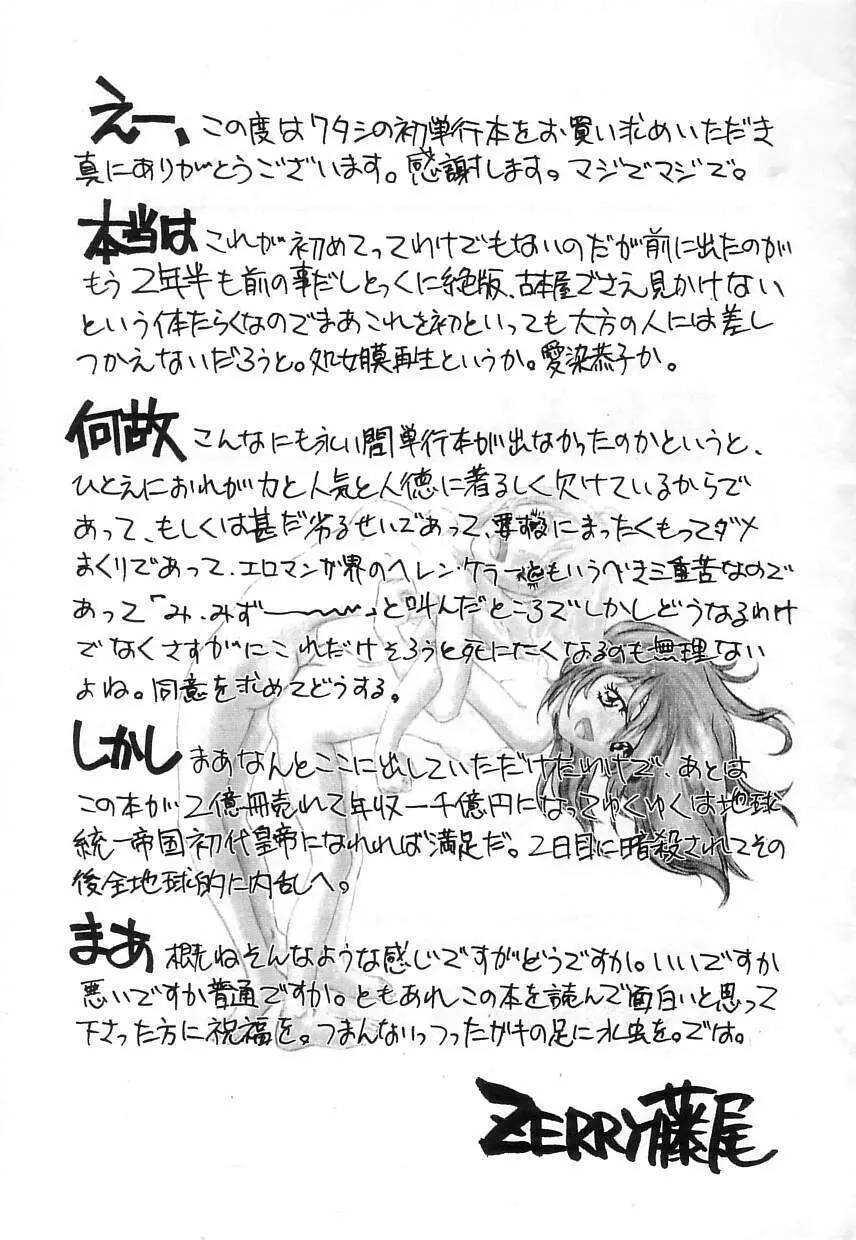 えー、この度はワタシの初単行本をお買い求めいただき
真にありがとうございます。感謝します。マジでマジで。
本当はこれが初めてってわけでもないのだが前に出たのが
もう2年半も前の事だしとっくに絶版、古本屋でさえ見かけない
という体たらくなのでまあこれを初といっても大方の人には差し
つかえないだろうと。処女膜再生というか。愛染恭子か。
何故こんなにも永い間単行本が出なかったのかというと、
ひとえにおれが力と人気と人徳に著るしく欠けているからで
あって、もしくは甚だ劣るせいであって、要するにまったくもってダメ
まくりであって、エロマンガ界のヘレン・ケラーともいうべき三重苦なので
あって「み、みず〜〜〜」と叫んだところでしかしどうなるわけ
でなくさすがにこれだけそろうと死にたくなるのも無理ない
よね。同意を求めてどうする。
しかしまあなんとここに出していただけたわけで、あとは
この本が2億冊売れて年収一千億円になってゆくゆくは地球
統一帝国初代皇帝になれれば満足だ。2日目に暗殺されてその
後全地球的に内乱へ。
まあ概ねそんなような感じですがどうですか。いいですか
悪いですか普通ですか。ともあれこの本を読んで面白いと思って
下さった方に祝福を。つまんないっつったガキの足に水虫を。では。
ZERRY藤尾